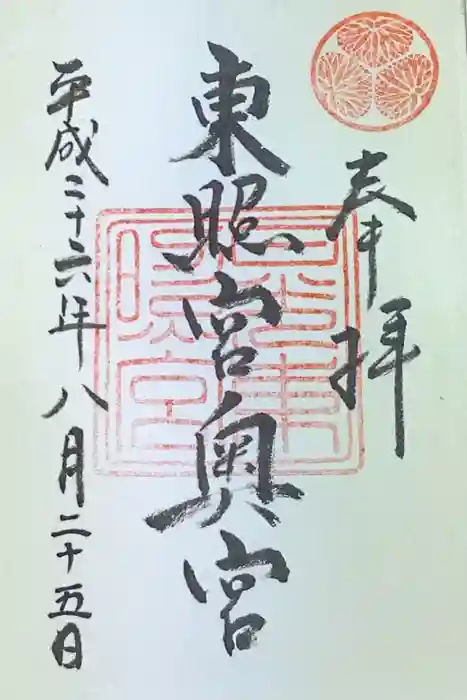 奉拝
東照宮奥宮
平成二十六年八月二十五日